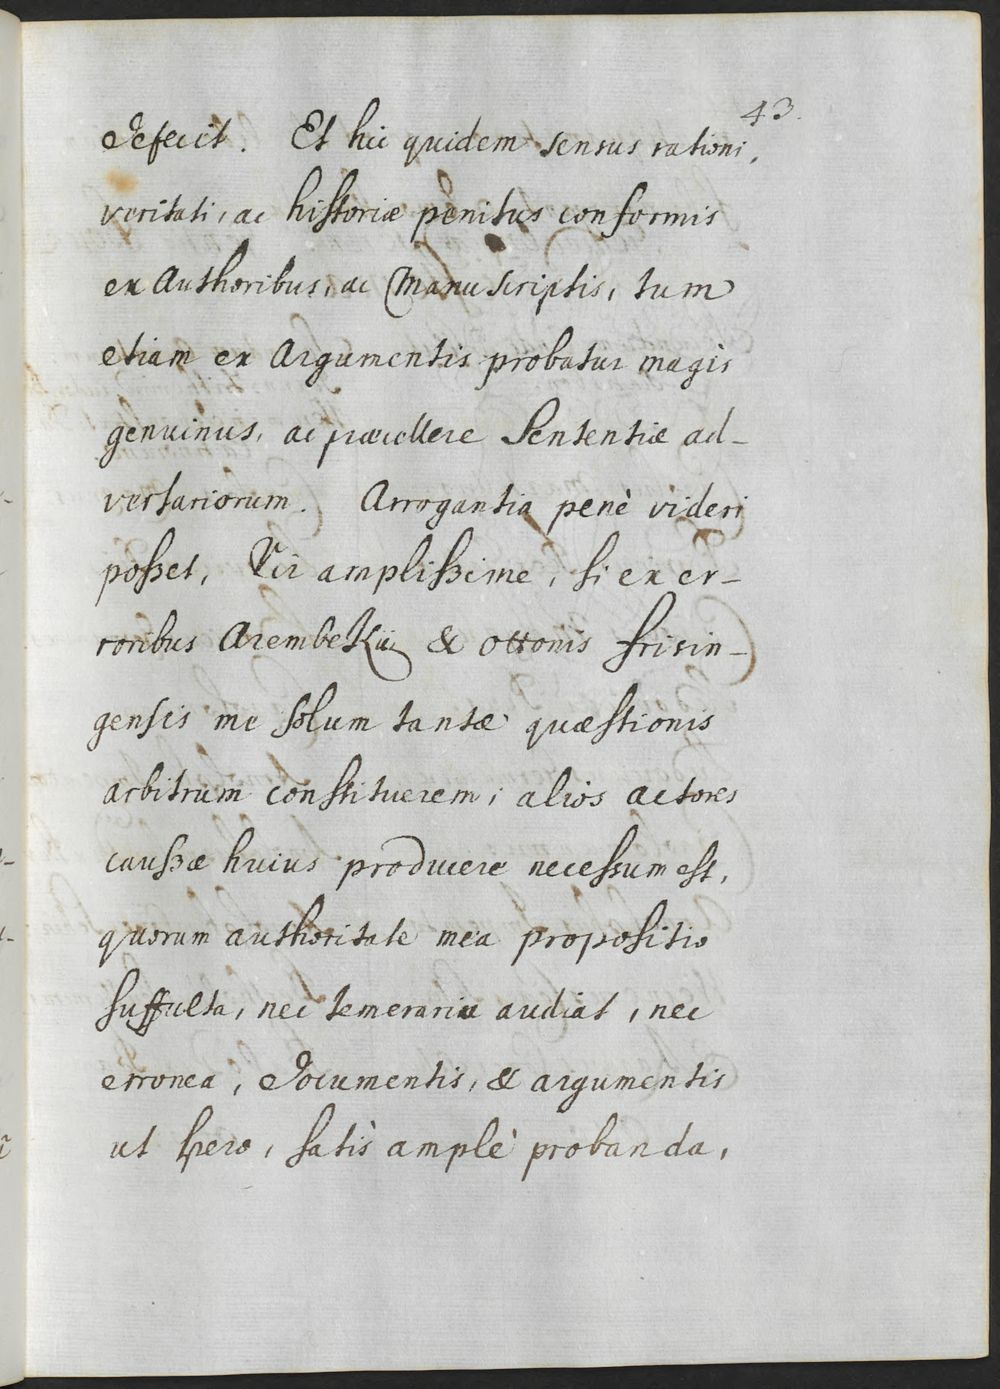 43.
defecit. Et hic quidem sensus rationi,
veritati, ac historiæ penitus conformis
ex Authoribus, ac Manuscriptis, tum
etiam ex Argumentis probatur magis
genuinus, ac præcellere Sententiæ ad-
versariorum. Arrogantia penè videri
poßet, Vir amplißime, si ex er-
roribus Arembekii & Ottonis Frisin-
gensis me solum tantæ quæstionis
arbitrum constituerem; alios actores
caußæ huius producere necessum est,
quorum authoritate mea propositio
suffulta, nec temeraria audiat, nec
erronea, documentis, & argumentis
ut spero, satis amplè probanda,